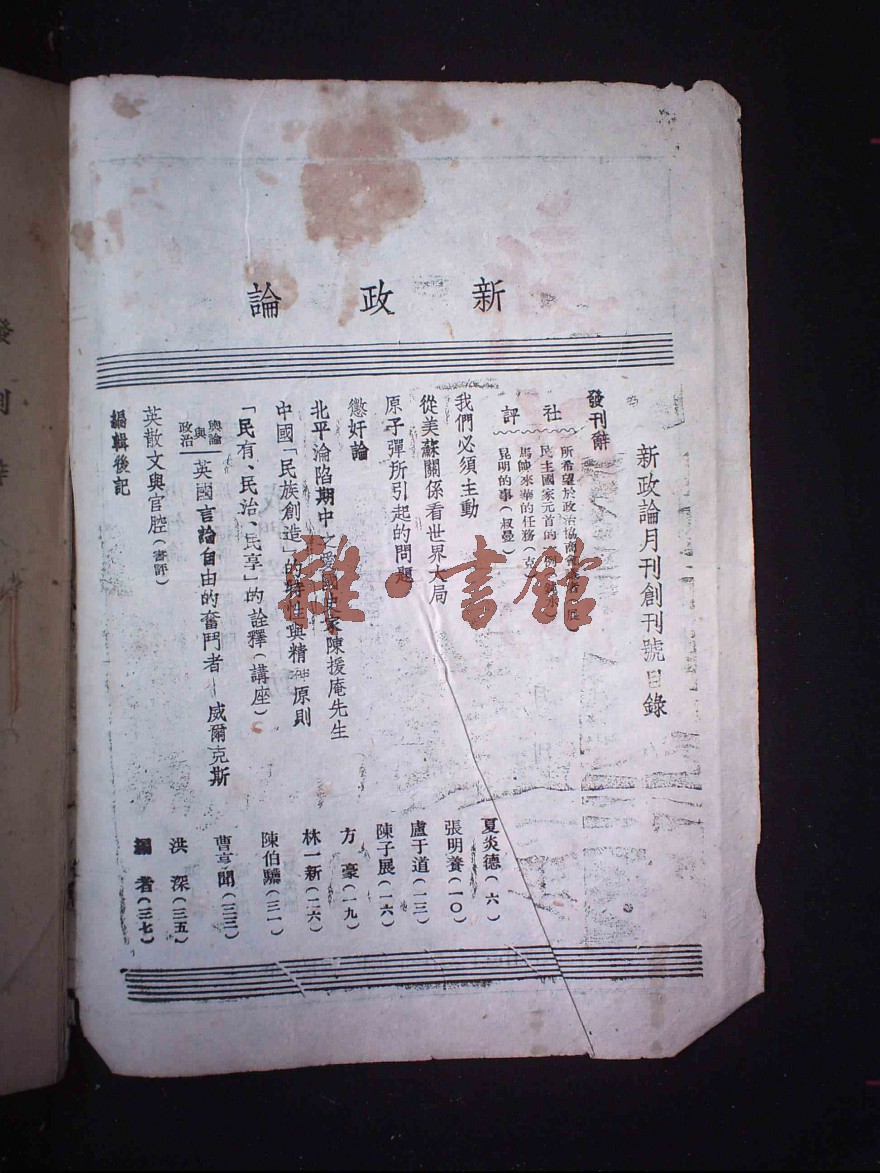 新政論
新政論月刊創刊號目錄
發刊辭
社評
所希望於政治協商會
民主國家元首的
馬帥來華的任務(克
昆明的事(叔曼)
我們必須主動 夏炎德(六)
從美蘇關係看世界大局 張明養(一〇)
原子彈所引起的問題 盧于道(一三)
懲奸論 陳子展(一六)
北平淪陷期中之愛國史家陳援庵先生 方豪(一九)
中國「民族創造」的特性與精神原則 林一新(二六)
「民有、民治、民享」的詮釋(講座) 陳伯驥(三一)
輿論與政治 英國言論自由的奮鬥者—威爾克斯 曹亨聞(三三)
英散文與官腔(書評) 洪深(三五)
編輯後記 編者(三七)
雜·書館
發刊辭